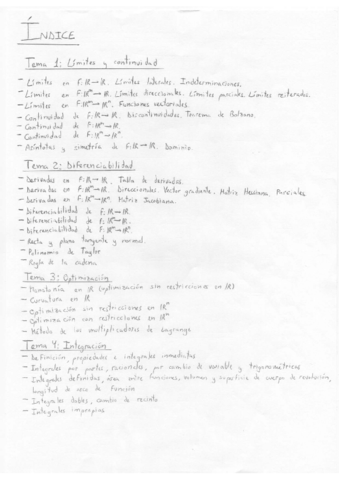 ÍNDICE
Tema 1: Límites y continuidad
- Límites en F: ℝ→ℝ. Límites laterales. Indeterminaciones.
- Límites en F: ℝⁿ→ℝ. Límites direccionales. Límites parciales. Límites reiterados.
- Límites en F: ℝⁿ→ℝᵐ. Funciones vectoriales.
- Continuidad de F: ℝ→ℝ. Discontinuidades. Teorema de Bolzano.
- Continuidad de F: ℝⁿ→ℝ.
- Continuidad de F: ℝⁿ→ℝᵐ.
- Asíntotas y simetría de F: ℝ→ℝ. Dominio.
Tema 2: Diferenciabilidad
- Derivadas en F: ℝ→ℝ. Tabla de derivadas.
- Derivadas en F: ℝⁿ→ℝ. Direccionales. Vector gradiente. Matriz Hessiana. Parciales
- Derivadas en F: ℝⁿ→ℝᵐ. Matriz Jacobiana.
- Diferenciabilidad de F: ℝ→ℝ.
- Diferenciabilidad de F: ℝⁿ→ℝ.
- Diferenciabilidad de F: ℝⁿ→ℝᵐ
- Recta y plano tangente y normal.
- Polinomio de Taylor
- Regla de la cadena
Tema 3: Optimización
- Monotonía en ℝ (optimización sin restricciones en ℝ)
- Curvatura en ℝ
- Optimización sin restricciones en ℝⁿ
- Optimización con restricciones en ℝⁿ
- Método de los multiplicadores de Lagrange
Tema 4: Integración
- Definición, propiedades e integrales inmediatas
- Integrales por partes, racionales, por cambio de variable y trigonométricas
- Integrales definidas, área entre funciones, volumen y superficie de cuerpo de revolución,
longitud de arco de función
- Integrales dobles, cambio de recinto
- Integrales impropias